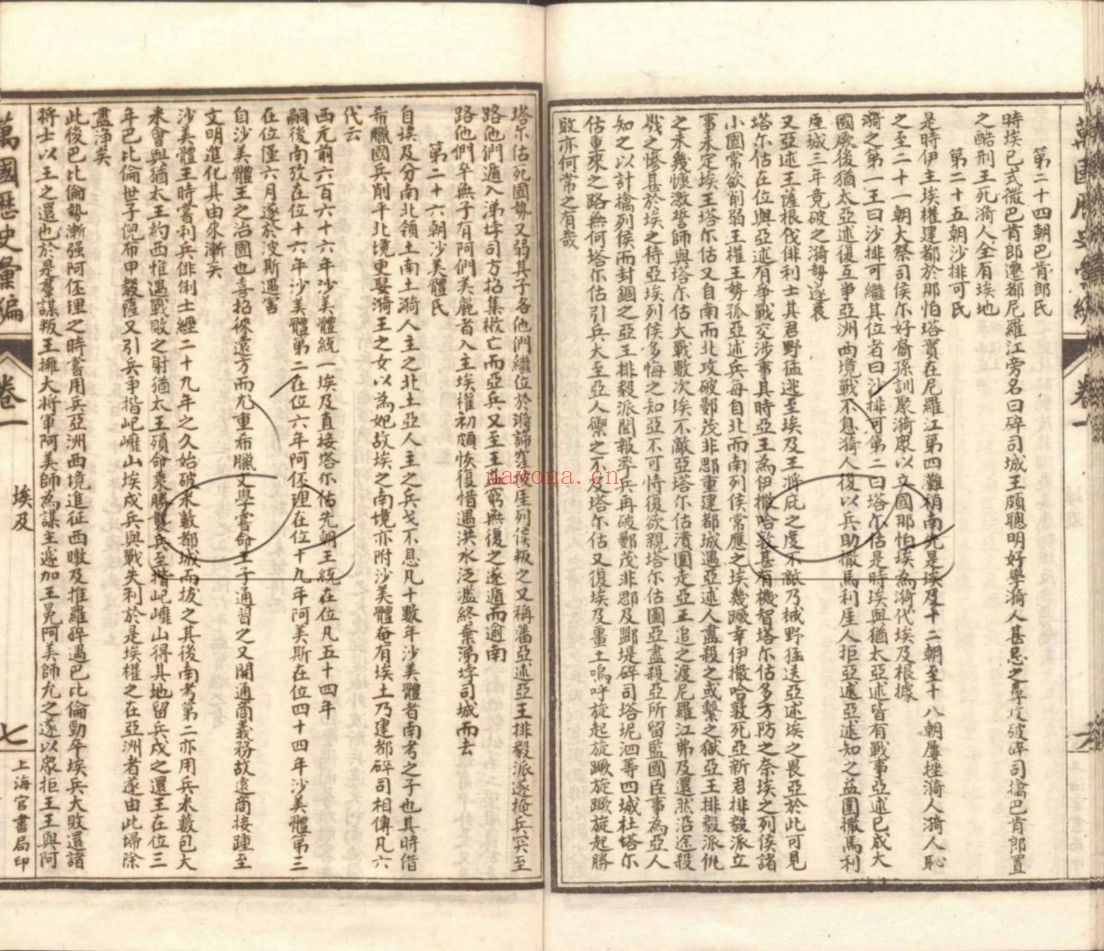 第二十四朝巴肯郎氏
時埃已式微巴肯郎遷都尼羅江旁名曰碎司城王頗聰明好學漪人甚忌之尋攻破碎司擒巴肯郎置
之酷刑王死漪人全有埃地
第二十五朝沙排可氏
是時伊主埃權建都於那怕塔實在尼羅江第四灘稍南先是埃及十二朝至十八朝屢挫漪人漪人恥
之至二十一朝大祭司侯尔好裔孫訓聚漪眾以立國那怕埃為漪代埃及根據
漪之第一王曰沙排可繼其位者曰沙排可第二曰塔尔估是時埃與猶太亞述皆有戰事亞述已成大
國厥後猶太亞述復互爭亞洲西境戰不息漪人復以兵助撒馬利厓人拒亞述亞述知之益圍撒馬利
厓城三年竟破之漪勢遂衰
又亞述王薩根伐俳利士其君野猛逃至埃及王將庇之度不敵乃械野猛送亞述埃之畏亞於此可見
塔尔估在位與亞述有爭戰交涉事其時亞王為伊撒哈敦甚有機智塔尔估多方防之奈埃之列侯諸
小國常欲削弱王權王勢孤亞述兵每自北而南列侯常應之埃幾蹶幸伊撒哈敦死亞新君排毅派立
事未定埃王塔尔估又自南而北攻破鄸茂非郡重建都城遇亞述人盡殺之或繫之獄亞王排毅派
之未幾慷激誓師與塔尔估大戰數次埃不敵亞塔尔估潰圍走亞王追之渡尼羅江弗及還然沿途殺
戮之慘甚於埃之待亞埃列侯多悔之知亞不可恃復欲親塔尔估圖亞盡殺亞所留監國臣事為亞人
知之以計擒列侯而封錮之亞王排毅派聞報率兵再破鄸茂非郡及鄲堤碎司塔坭泗等四城杜塔尔
估重來之路無何塔尔估引兵大至亞人禦之不及塔尔估又復埃及畫土嗚呼旋起旋蹶旋蹶旋起勝
敗亦何常之有哉
塔尔估死國勢又弱其子各他們繼位於漪諭穿彼厓列侯叛之又稱藩亞述亞王排毅派遂掩兵突至
路他們遁入涕垿司方招集散亡而亞兵又至王勢窮無復之遂遁而適南
路他們卒無子有阿們美龐者入主埃權初頗恢復惜遇洪水泛濫終棄涕垿司城而去
第二十六朝沙美體氏
自埃及分南北領土南土漪人主之北土亞人主之兵戈不息凡十數年沙美體者南考之子也其時借
希臘國兵削平北境更娶漪王之女以為妃故埃之南境亦附沙美體奄有埃土乃建都碎司相傳凡六
代云
西元前六百六十六年沙美體統一埃及直接塔尔估先朝王統在位凡五十四年
嗣後南攷在位十六年沙美體第二在位六年阿伾理在位十九年阿美斯在位四十四年沙美體第三
在位僅六月遂於波斯遇害
自沙美體王之治國也喜招徠遠方而尤重希臘文學嘗命王子通習之又開通商義務故遠商接踵至
文明進化其由來漸矣
沙美體王時嘗利兵俳俐士經二十九年之久始破米數都城而拔之其後南考第二亦用兵米數包大
來會與猶太王約西惟遇戰敗之射猶太王殞命乘勝轚兵至楷屺嶉山得其地留兵戍之還王在位三
年巴比倫世子倪布甲毅薩又引兵爭楷屺嶉山埃戍兵與戰失利於是埃權之在亞洲者遂由此掃除
盡淨矣
此後巴比倫勢漸强阿伾理之時嘗用兵亞洲西境進征西暾及推羅碎遇巴比倫勁卒埃兵大敗還諸
將士以王之還也於是羣謀叛王擁大將軍阿美師為謀主遂加王冕阿美師允之遂以眾拒王王與阿
萬國歷史彙編
卷一
埃及
七
上海官書局印
nayona.cn